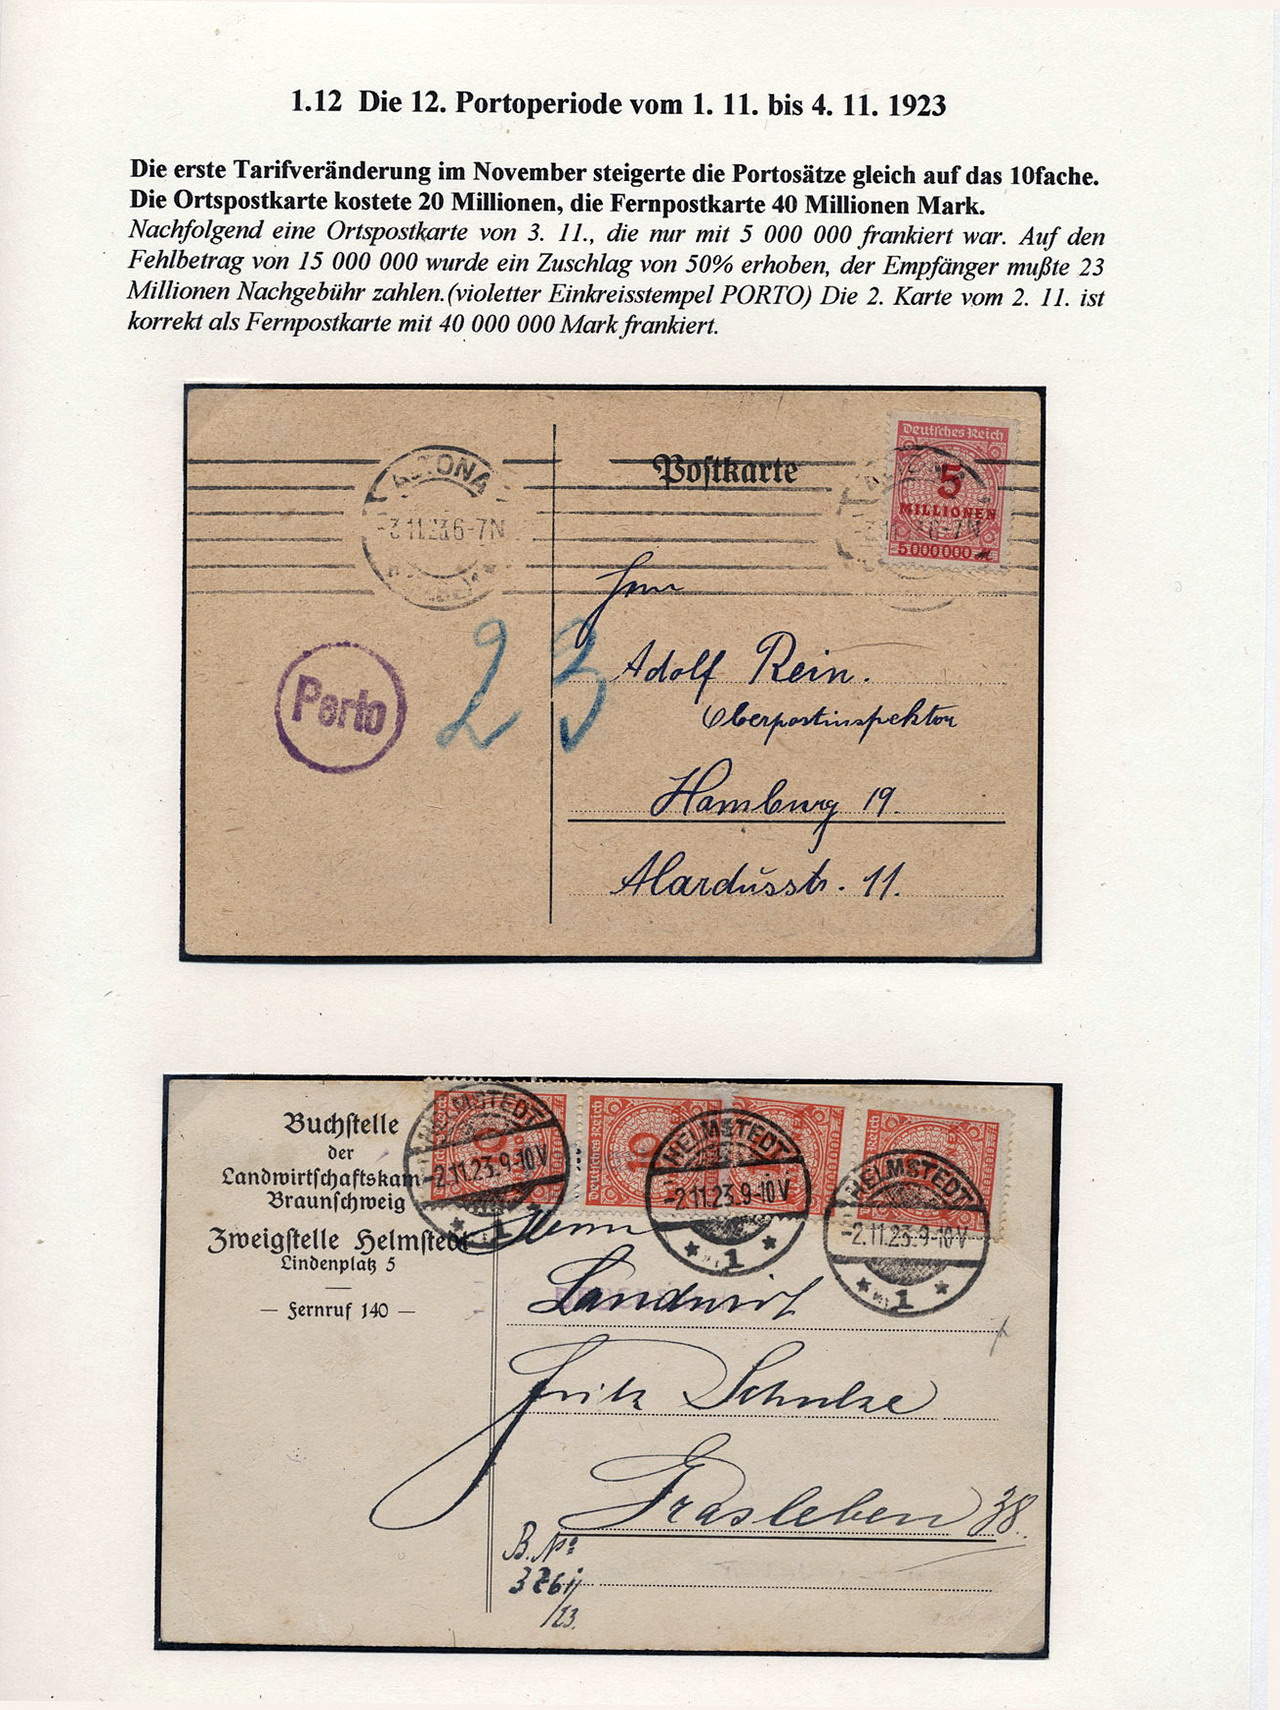 1.12 Die 12. Portoperiode vom 1. 11. bis 4. 11. 1923
Die erste Tarifveränderung im November steigerte die Portosätze gleich auf das 10fache.
Die Ortspostkarte kostete 20 Millionen, die Fernpostkarte 40 Millionen Mark.
Nachfolgend eine Ortspostkarte von 3. 11., die nur mit 5 000 000 frankiert war. Auf den
Fehlbetrag von 15 000 000 wurde ein Zuschlag von 50% erhoben, der Empfänger mußte 23
Millionen Nachgebühr zahlen.(violetter Einkreisstempel PORTO) Die 2. Karte vom 2. 11. ist
korrekt als Fernpostkarte mit 40 000 000 Mark frankiert.
ALTONA
-3.11.23.6-7N
Postkarte
Deutsches Reich
5
MILLIONEN
5000000
Herrn
Porto
23
Adolf Rein.
Oberpostinspektor
Hamburg 19.
Alardusstr. 11.
Buchstelle
der
Landwirtschaftskam
Braunschweig
Zweigstelle Helmstedt
Lindenplatz 5
Fernruf 140
Deutsches Reich
10
HELMSTEDT
-2.11.23.9-10V
1
HELMSTEDT
-2.11.23.9-10V
1
HELMSTEDT
-2.11.23.9-10V
1
Herrn
Landwirt
Fritz Schulze
Grasleben 38.
B. No
/23.